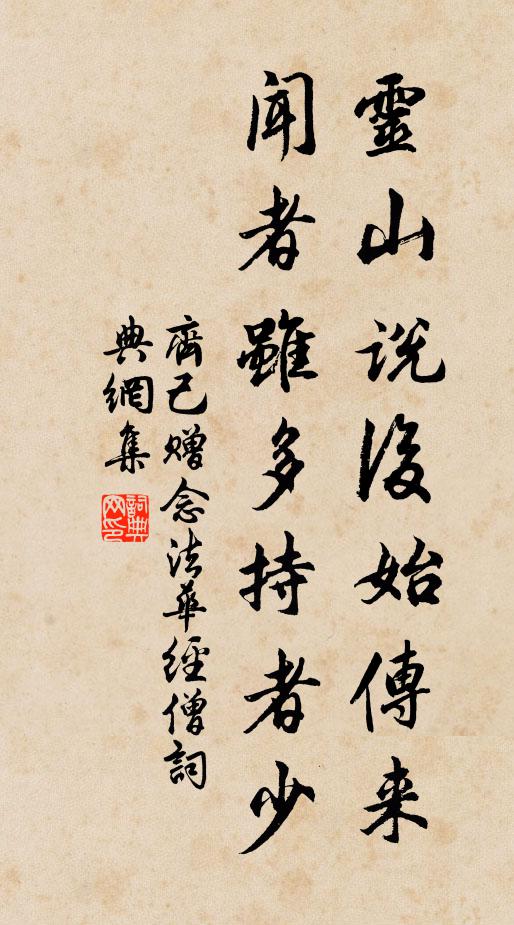 靈山説後始傳来
聞者雖多持者少
齊己贈念法華經僧詞
典網集
詞典网印